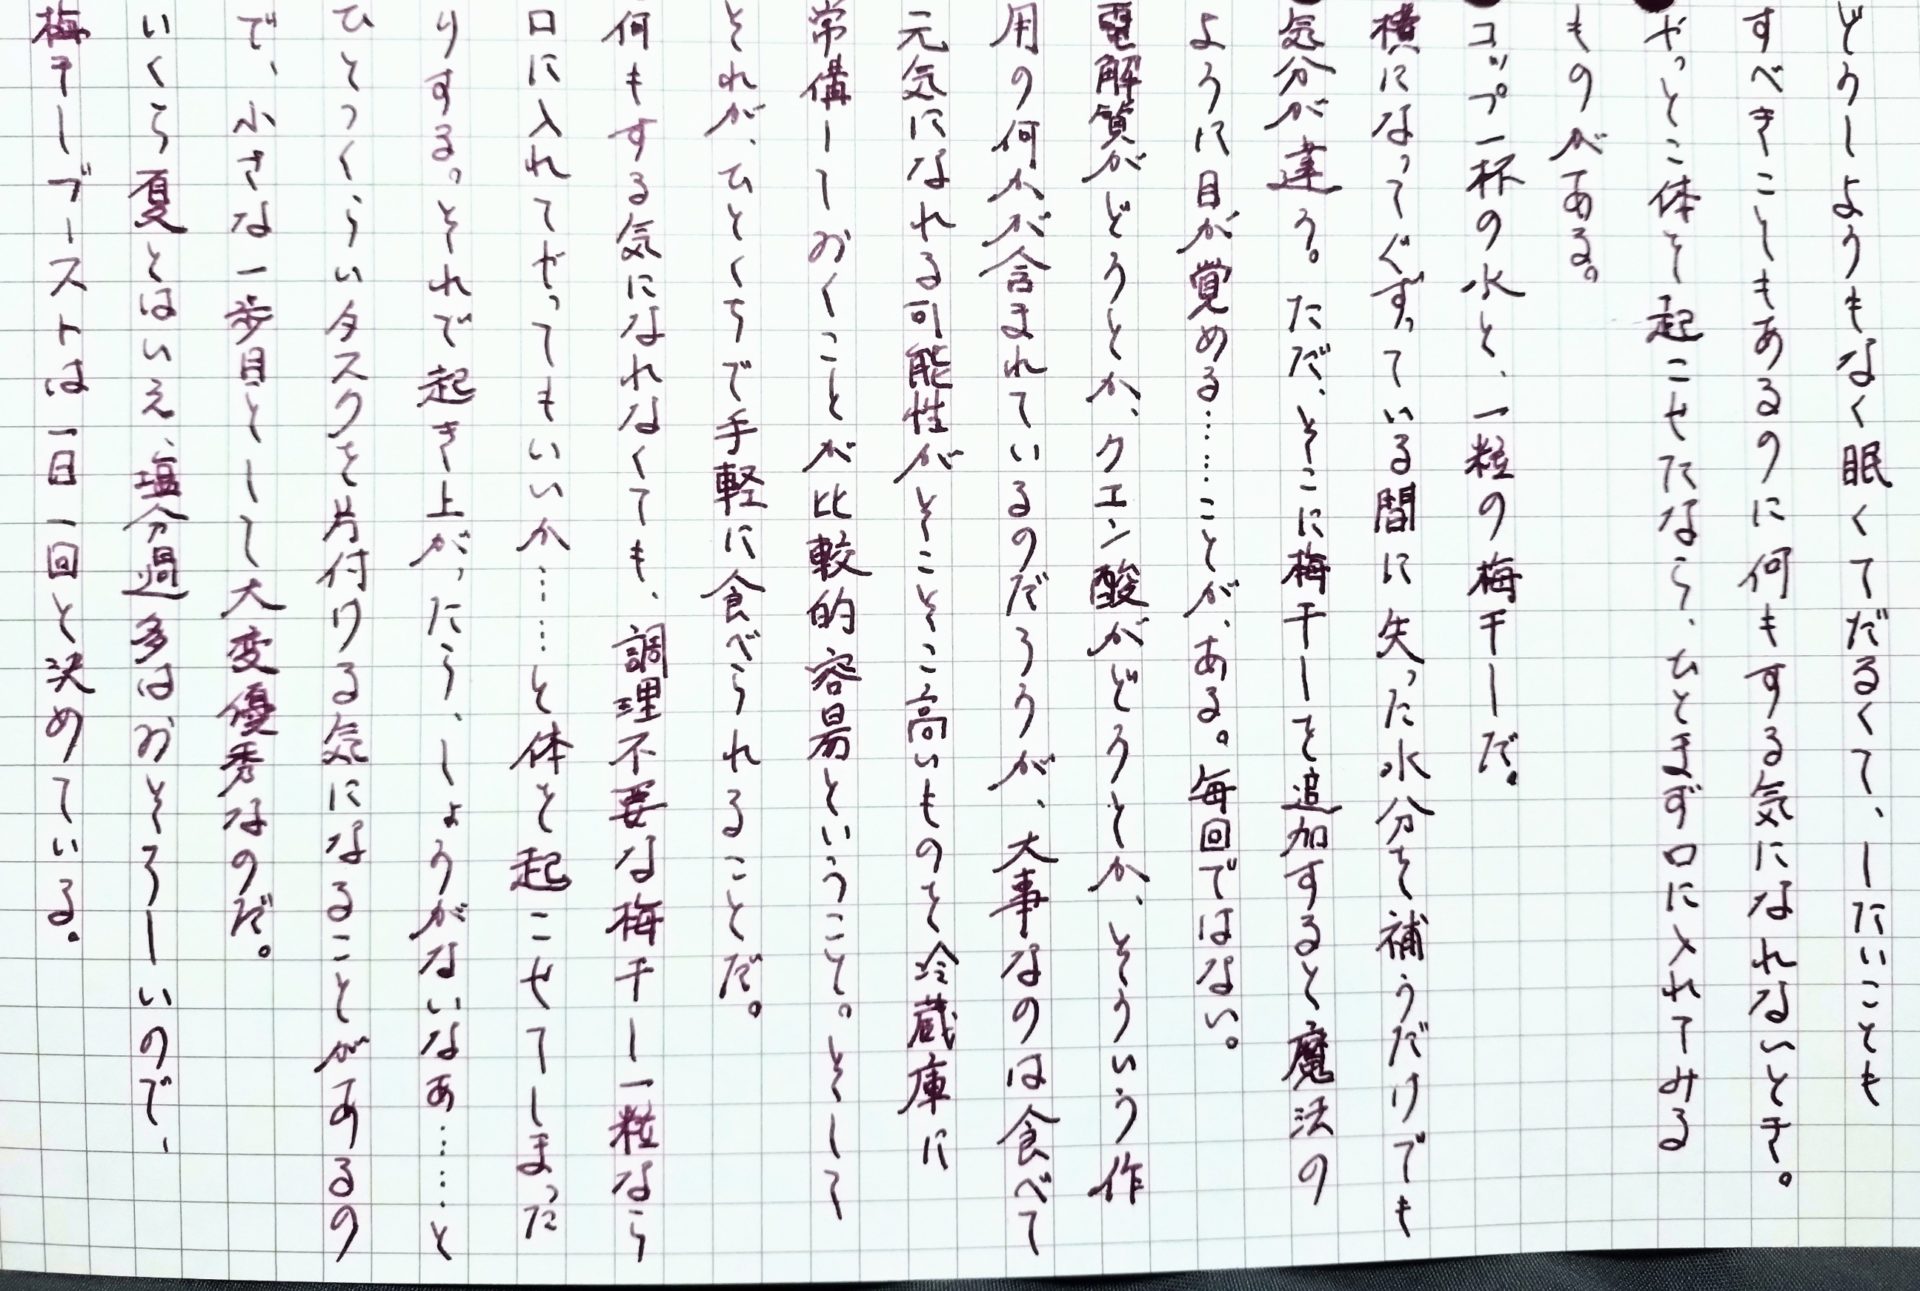 どうしようもなく眠くてだるくて、したいことも
すべきこともあるのに何もする気になれないとき。
やっとこ体を起こせたなら、ひとまず口に入れてみる
ものがある。
コップ一杯の水と、一粒の梅干しだ。
横になってぐずっている間に失った水分を補うだけでも
気分が違う。ただ、そこに梅干しを追加すると魔法の
ように目が覚める……ことが、ある。毎回ではない。
電解質がどうとか、クエン酸がどうとか、そういう作
用の何かが含まれているのだろうが、大事なのは食べて
元気になれる可能性がそこそこ高いものを冷蔵庫に
常備しておくことが比較的容易ということ。そして
それが、ひとくちで手軽に食べられることだ。
何もする気になれなくても、調理不要な梅干し一粒なら
口に入れてやってもいいか……と体を起こせてしまった
りする。それで起き上がったら、しょうがないなあ……と
ひとつくらいタスクを片付ける気になることがあるの
で、小さな一歩目として大変優秀なのだ。
いくら夏とはいえ、塩分過多はおそろしいので、
梅干しブーストは一日一回と決めている。